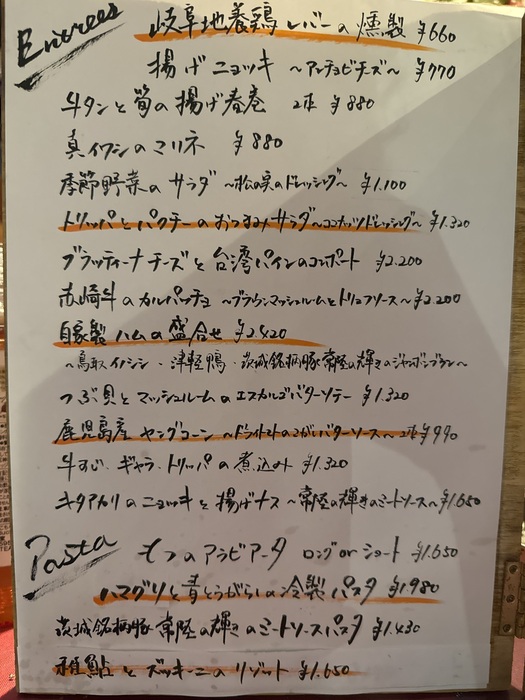 Entrees
岐阜地養鶏レバーの燻製 ¥660
揚げニョッキ 〜アンチョビチーズ〜 ¥770
牛タンと筍の揚げ春巻 2本 ¥880
真イワシのマリネ ¥880
季節野菜のサラダ 〜松の実のドレッシング〜 ¥1.100
トリッパとパクチーのおつまみサラダ〜ココナッツドレッシング〜 ¥1.320
ブラッティーナチーズと台湾パインのコンポート ¥2.200
赤崎牛のカルパッチョ 〜ブラウンマッシュルームとトリュフソース〜 ¥2.200
自家製ハムの盛合せ ¥2.420
〜鳥取イノシシ・津軽鴨・茨城銘柄豚常陸の輝きのジャンボンブラン〜
つぶ貝とマッシュルームのエスカルゴバターソテー ¥1.320
鹿児島産ヤングコーン 〜ドライトマトの焦がしバターソース〜 2本 ¥990
牛すじ・ギャラ・トリッパの煮込み ¥1.320
キタアカリのニョッキと揚げナス 〜常陸の輝きのミートソース〜 ¥1.650
Pasta
もつのアラビアータ ロング or ショート ¥1.650
ハマグリと青とうがらしの冷製パスタ ¥1.980
茨城銘柄豚 常陸の輝きのミートソースパスタ ¥1.430
稚鮎とズッキーニのリゾット ¥1.650